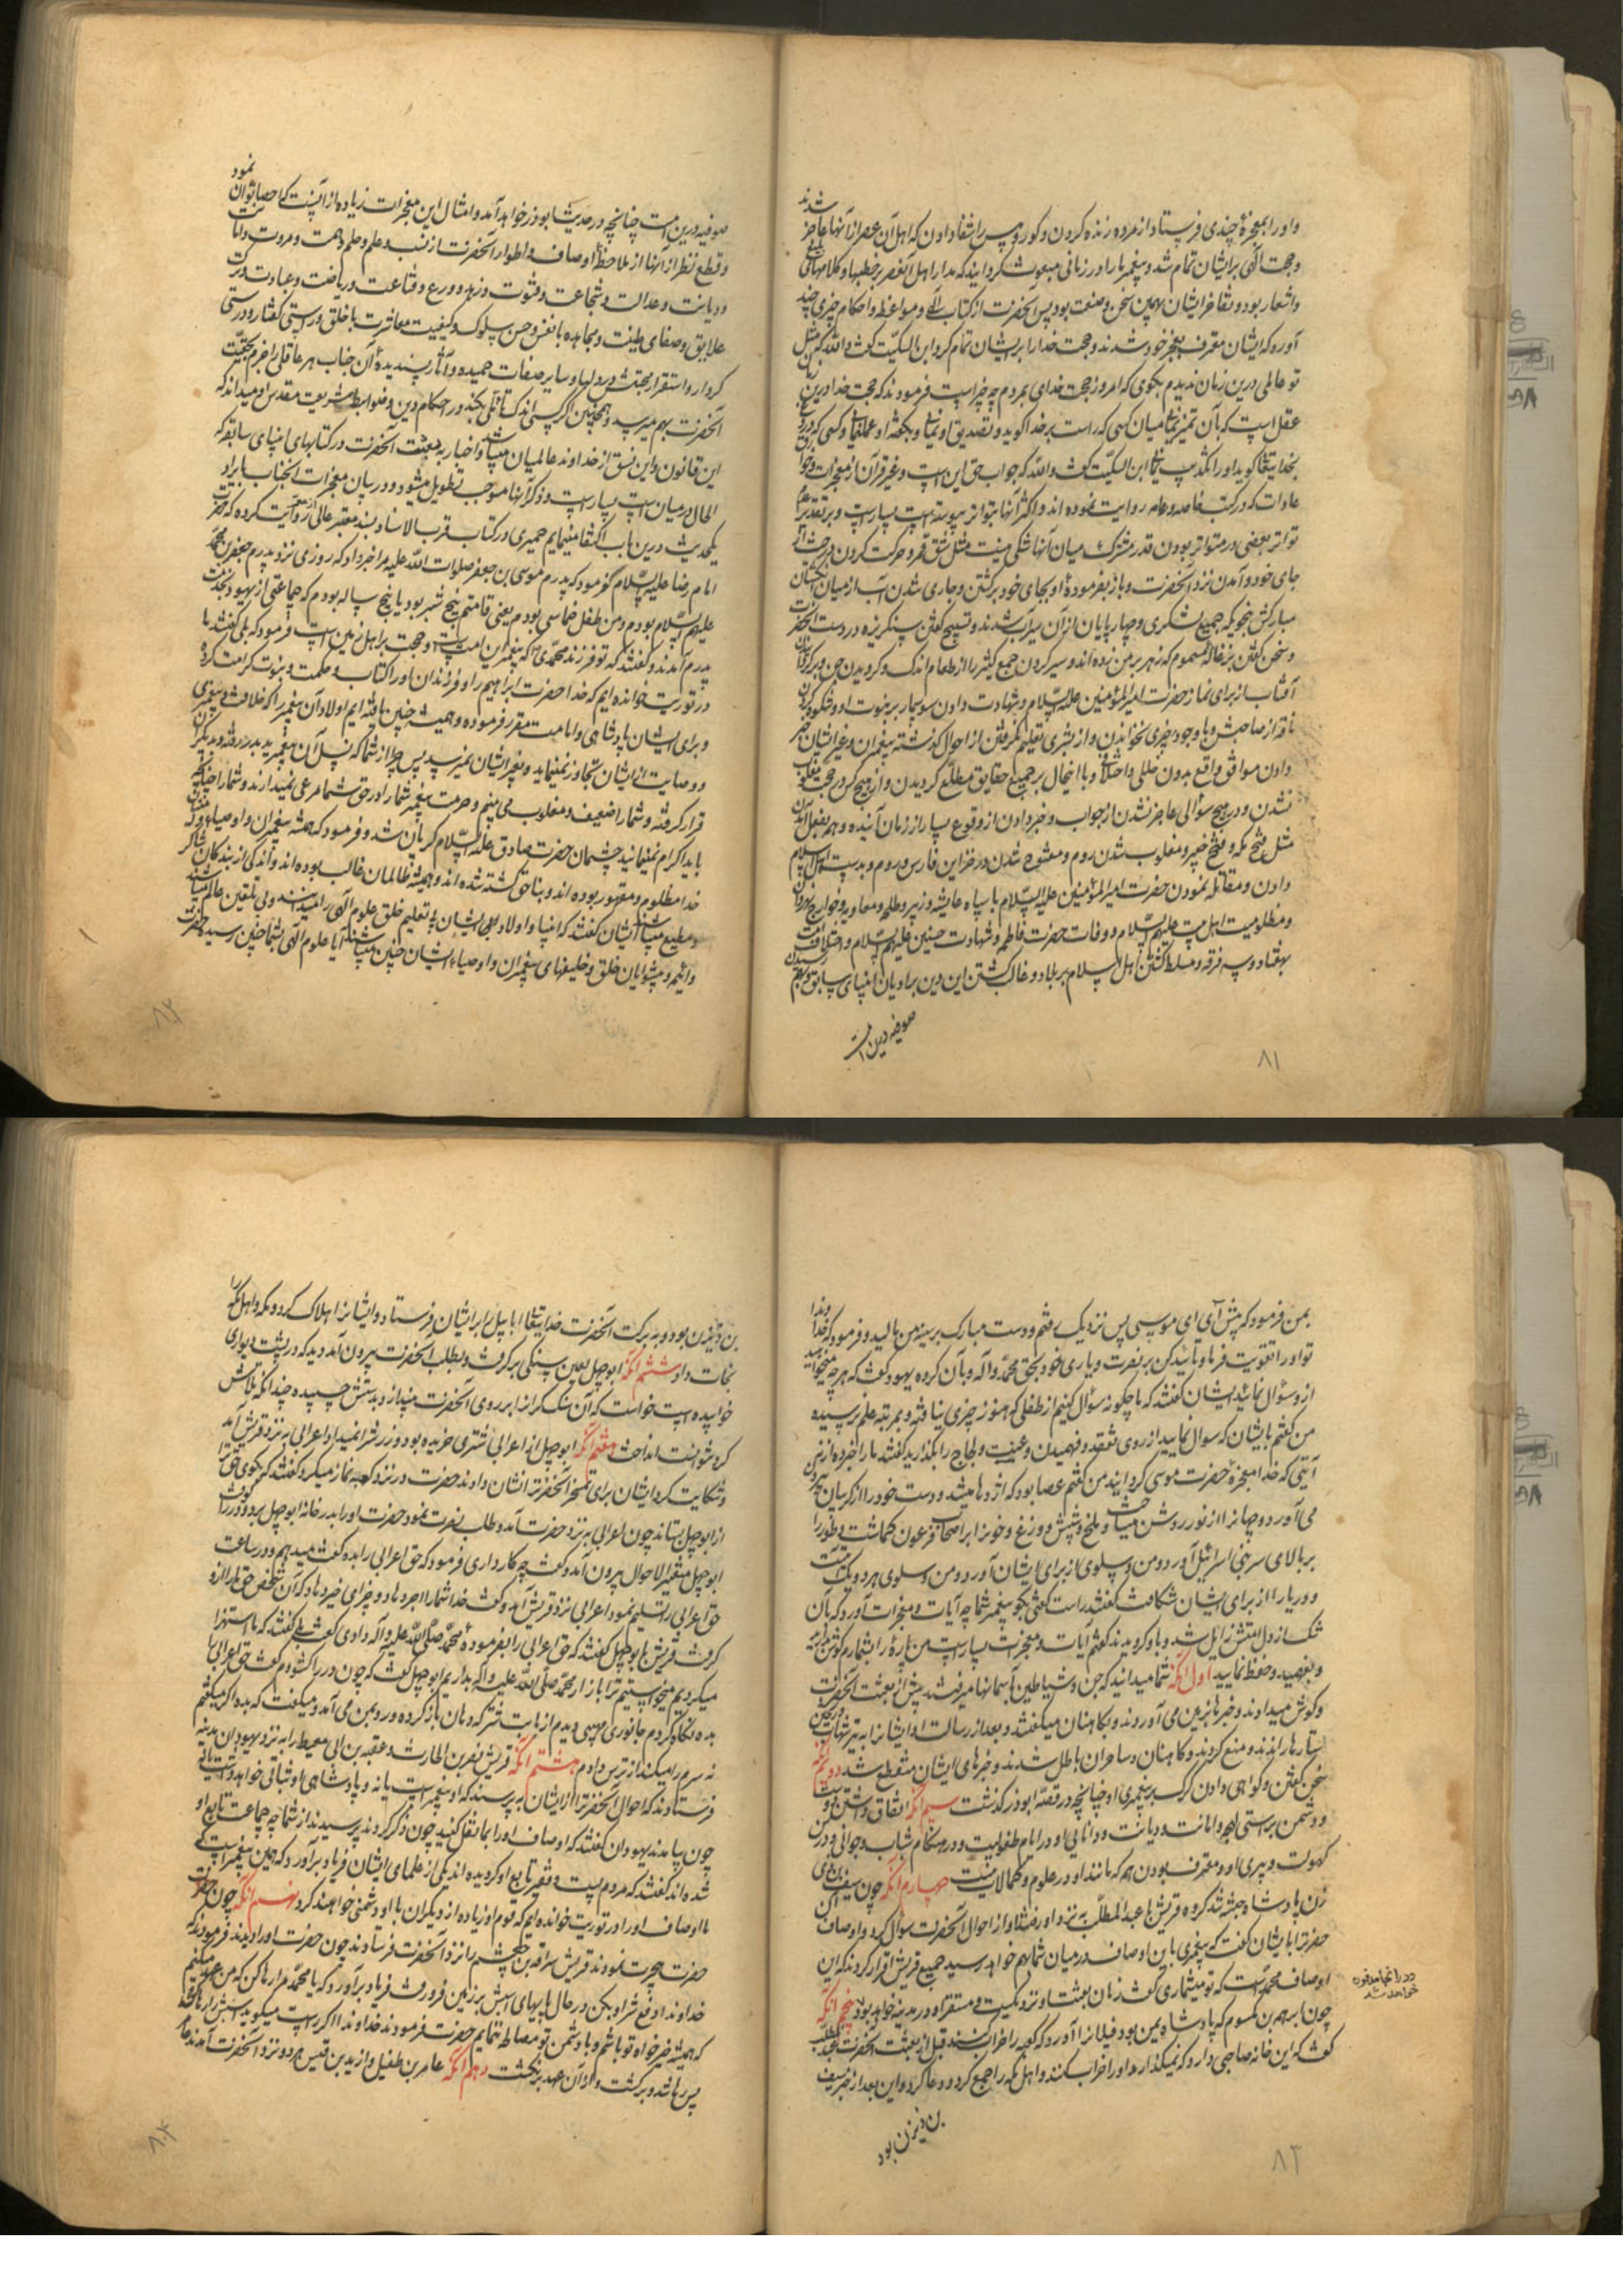 شدند
و او را بمعجزهٔ چندی فرستاد از مرده زنده کردن و کور و پیس را شفا دادن که اهل آن عصر از آنها عاجز
و حجت الهی بر ایشان تمام شد و پیغمبر ما را در زمانی مبعوث گردانید که مدار اهل آنعصر بر خطبها و کلامهای
و اشعار بود و تفاخر ایشان بهمین سخن و صنعت بود پس آنحضرت از کتاب الهی و مواعظ و احکام چیزی چند
آورد که ایشان معترف بعجز خود شدند و حجت خدا را بر ایشان تمام کرد ابن السکیت گفت والله که مثل
تو عالمی درین زمان ندیدم بگوی که امروز حجت خدای بمردم چه چیز است فرمودند که حجت خدا درین زمان
عقل است که بآن تمیز میان کسی که راست بر خدا گوید و تصدیق او نمائی و بگفته او عمل نمائی و کسی که دروغ
بخدایتعالی گوید او را تکذیب نمائی ابن السکیت گفت والله که جواب حق این است و غیر قرآن از معجزات و خوارق
عادات که در کتب خاصه و عامه روایت نموده اند و اکثر آنها بتواتر پیوسته است بسیار است و بر تقدیر عدم
تواتر بعضی در متواتر بودن قدر مشترک میان آنها شکی نیست مثل شق قمر و حرکت کردن درخت از
جای خود و آمدن نزد آنحضرت و باز بفرمودهٔ او بجای خود برگشتن و جاری شدن آب از میان انگشتان
مبارکش بنحویکه جمیع لشکری و چهارپایان از آن سیراب شدند و تسبیح گفتن سنگریزه در دست آنحضرت
و سخن گفتن بزغاله مسموم که زهر بر من زده اند و سیر کردن جمع کثیر را از طعام اندک و گرویدن جن و برگردانیدن
آفتاب از برای نماز حضرت امیرالمؤمنین علیه السلام و شهادت دادن سوسمار بر نبوت او و شکوه کردن
ناقه از صاحبش و با وجود چیزی نخواندن و از بشری تعلیم نگرفتن از احوال گذشته پیغمبران و غیر ایشان خبر
دادن موافق واقع بدون خللی و اختلافی و با اینحال بر جمیع حقایق مطلع گردیدن و از هیچ کس در حجت مغلوب
نشدن و در هیچ سؤالی عاجز نشدن از جواب و خبر دادن از وقوع بسیار از زمان آینده و همه بفعل آمدن
مثل فتح مکه و فتح خیبر و مغلوب شدن روم و مفتوح شدن در خزاین فارس و روم و بدست اهل اسلام
دادن و مقاتله نمودن حضرت امیرالمؤمنین علیه السلام با سپاه عایشه و زبیر و طلحه و معاویه و خوارج نهروان
و مظلومیت اهل بیت علیهم السلام و وفات حضرت فاطمه و شهادت حسنین علیهم السلام و اختلاف امت
بهفتاد و سه فرقه و مسلط گشتن اهل اسلام بر بلاد و غالب گشتن این دین بر ادیان انبیای سابق و بهم رسیدن
صوفیه درین امت
۸۱
نمود
صوفیه درین امت چنانچه در حدیث ابوذر خواهد آمد و امثال این معجزات زیاده از آنست که احصا توان
و قطع نظر از آنها از ملاحظهٔ اوصاف و اطوار آنحضرت از نسب و علم و حلم و همت و مروت و امانت
و دیانت و عدالت و شجاعت و فتوت و زهد و ورع و قناعت و ریاضت و عبادت و ترک
علایق و صفای طینت و مجاهده با نفس و حسن سلوک و کیفیت معاشرت با خلق و راستی گفتار و درستی
کردار و استقرار محبتش در دلها و سایر صفات حمیده و آثار پسندیدهٔ آن جناب هر عاقلی را جزم بحقیت
آنحضرت بهم میرسد و همچنین اگر کسی اندک تأملی بکند در احکام دین و ضوابط شریعت مقدس او میداند که
این قانون و این نسق از خداوند عالمیان میباشد و اخبار به بعثت آنحضرت در کتابهای انبیای سابقه که
الحال در میان است بسیار است و ذکر آنها موجب تطویل میشود و در بیان معجزات آنجناب بایراد
یکحدیث درین باب اکتفا مینمایم حمیری در کتاب قرب الاسناد بسند معتبر عالی روایت کرده که حضرت
امام رضا علیه السلام فرمود که پدرم موسی بن جعفر صلوات الله علیه مرا خبر داد که روزی نزد پدرم جعفر بن محمد
علیهم السلام بودم و من طفل خماسی بودم یعنی قامتم پنج شبر بود یا پنج ساله بودم که جماعتی از یهود بخدمت
پدرم آمدند و گفتند که تو فرزند محمدی که پیغمبر این امت است و حجت بر اهل زمین است فرمود که بلی گفتند ما
در توریت خوانده ایم که خدا حضرت ابراهیم را و فرزندان او را کتاب و حکمت و نبوت کرامت کرده
و برای ایشان پادشاهی و امامت مقرر فرموده و همیشه چنین یافته ایم اولاد آن پیغمبر را که خلافت و پیغمبری
و وصایت از ایشان تجاوز نمینماید و بغیر ایشان نمیرسد پس چرا از شما که نسل آن پیغمبرید بدر رفته و بدیگران
قرار گرفته و شما را ضعیف و مغلوب می بینم و حرمت پیغمبر شما را در حق شما مرعی نمیدارند و شما را چنانچه
باید اکرام نمینمایند چشمان حضرت صادق علیه السلام گریان شد و فرمود که همیشه پیغمبران و اوصیا و دوستان
خدا مظلوم و مقهور بوده اند و بناحق کشته شده اند و همیشه ظالمان غالب بوده اند و اندکی از بندگان شاکر
و مطیع میباشند ایشان گفتند که انبیا و اولاد ایشان بی تعلیم خلق علوم الهی را میدانند و بی تلقین عالم میباشند
و ائمه و پیشوایان خلق و خلیفهای پیغمبران و اوصیاء ایشان چنین میباشند آیا علوم الهی بشما چنین رسید حضرت
۸۲
بمن فرمود که پیش آی ای موسی پس نزدیک رفتم و دست مبارک بر سینه من مالید و فرمود که خداوندا
تو او را تقویت فرما و تأیید کن بر نصرت و یاری خود بحق محمد و آله و بآن گروه یهود گفت که هر چه میخواهید
ازو سؤال نمائید ایشان گفتند که ما چگونه سؤال کنیم از طفلی که هنوز چیزی نیافته و بمرتبه علم نرسیده
من گفتم بایشان که سوال نمایید از روی تفقه و فهمیدن و عنت و لجاج را بگذارید گفتند ما را خبر ده از نه
آیتی که خدا معجزهٔ حضرت موسی گردانید من گفتم عصا بود که اژدها میشد و دست خود را از گریبان بیرون
می آورد و جهانرا از نور روشن میساخت و ملخ و شپش و وزغ و خون را بر اصحاب فرعون گماشت و طور را
بر بالای سر بنی اسرائیل آورد و من و سلوی از برای ایشان آورد و من و سلوی هر دو یک آیت است
و دریا را از برای ایشان شکافت گفتند راست گفتی بگو پیغمبر شما چه آیات و معجزات آورد که بآن
شک از دل امتش زایل شد و باو گرویدند گفتم آیات و معجزات بسیار است من پارهٔ را بشمارم گوش دارید
و بفهمید و حفظ نمایید اول آنکه شما میدانید که جن و شیاطین بآسمانها میرفتند پیش از بعثت آنحضرت
و گوش میدادند و خبرها بزمین می آوردند و بکاهنان میگفتند و بعد از رسالت او ایشانرا به تیر شهاب و رختن
ستارها راندند و منع کردند و کاهنان و ساحران باطل شدند و خبرهای ایشان منقطع شد دوم آنکه
سخن گفتن و گواهی دادن گرگ بر پیغمبری او چنانچه در قصهٔ ابوذر گذشت سیم آنکه اتفاق داشتن دوست
و دشمن بر راستی لهجه و امانت و دیانت و دانایی او در ایام طفولیت و در هنگام شباب و جوانی و در سن
کهولت و پیری او و معترف بودن همه که مانند او در علوم و کمالات نیست چهارم آنکه چون سیف بن ذی
یزن پادشاه حبشه شد گروه قریش با عبدالمطلب به نزد او رفتند او از احوال آنحضرت سوال کرد و اوصاف آن
حضرترا بایشان گفت که پیغمبری باین اوصاف در میان شما بهم خواهد رسید جمیع قریش اقرار کردند که این
اوصاف محمد است که تو میشماری گفت زمان بعثت او نزدیکست و مستقر او در مدینه خواهد بود پنجم آنکه
چون ابرهه بن یکسوم که پادشاه یمن بود فیلانرا آورد که کعبه را خراب کند قبل از بعثت آنحضرت عبدالمطلب
گفت که این خانه صاحبی دارد که نمیگذارد او را خراب کنند و اهل مکه را جمع کرد و دعا کرد و این بعد از خبر سیف
و در آنجا مدفون
خواهد شد
بن ذی یزن بود
۸۳
بن ذی یزن بود و به برکت آنحضرت خدایتعالی ابابیل را بر ایشان فرستاد و ایشانرا هلاک کرد و مکه و اهل مکه را
نجات داد ششم آنکه ابوجهل لعین سنگی برگرفت و بطلب آنحضرت بیرون آمد دید که در پشت دیواری
خوابیده است خواست که آن سنگ گرانرا بر روی آنحضرت بیندازد بدستش چسبیده چندانکه تلاش
کرد نتوانست انداخت هفتم آنکه ابوجهل از اعرابی شتری خریده بود و زرش را نمیداد اعرابی به نزد قریش آمد
و شکایت کرد ایشان برای تمسخر آنحضرترا نشان دادند حضرت در نزد کعبه نماز میکرد گفتند که بگوی حق ترا
از ابوجهل بستاند چون اعرابی به نزد حضرت آمد و طلب نصرت نمود حضرت او را بدر خانه ابوجهل برد و در را کوفت
ابوجهل متغیر الاحوال بیرون آمد و گفت چه کار داری فرمود که حق اعرابی را بده گفت میدهم و در ساعت
حق اعرابی را تسلیم نمود اعرابی نزد قریش آمد و گفت خدا شما را اجر دهاد و جزای خیر دهاد که آن شخص حق مرا ازو
گرفت قریش با ابوجهل گفتند که حق اعرابی را بفرمودهٔ محمد صلی الله علیه و آله دادی گفت بلی گفتند که ما استهزا
میکردیم میخواستیم ترا باز از محمد صلی الله علیه و آله بداریم ابوجهل گفت که چون در را گشودم گفت حق اعرابی را
بده نگاه کردم جانوری مهیبی دیدم از بابت شتر که دهان باز کرده و رو بمن می آمد و میگفت که بده اگر میگفتم
نه سرم را میکند از ترس دادم هشتم آنکه قریش نضر بن الحارث و عقبه بن ابی معیط را به نزد یهودان مدینه
فرستادند که احوال آنحضرترا از ایشان به پرسند که او پیغمبر است یا نه و پادشاهی او ثباتی خواهد داشت یا نه
چون بیامدند یهودان گفتند که اوصاف او را بما نقل کنید چون ذکر کردند پرسیدند از شما چه جماعت تابع او
شده اند گفتند که مردم پست و فقیر تابع او گرویده اند یکی از علمای ایشان فریاد برآورد که همین پیغمبر است که
ما اوصاف او را در توریت خوانده ایم که قوم او زیاده از دیگران با او دشمنی خواهند کرد نهم آنکه چون حضرت
حضرت هجرت نمودند قریش سراقه بن جعشم را نزد آنحضرت فرستادند چون حضرت او را دیدند فرمودند که
خداوندا دفع شر او بکن در حال پایهای اسبش بر زمین فرو رفت فریاد برآورد که یا محمد مرا رها کن که من عهد میکنم
که همیشه خیرخواه تو باشم و با دشمن تو مصالحه ننمایم حضرت فرمودند خداوندا اگر راست میگوید اسبش را رها کن
پس رها شد و برگشت و از آن عهد برنگشت دهم آنکه عامر بن طفیل و ازید بن قیس هر دو نزد آنحضرت آمدند عامر
۸۴